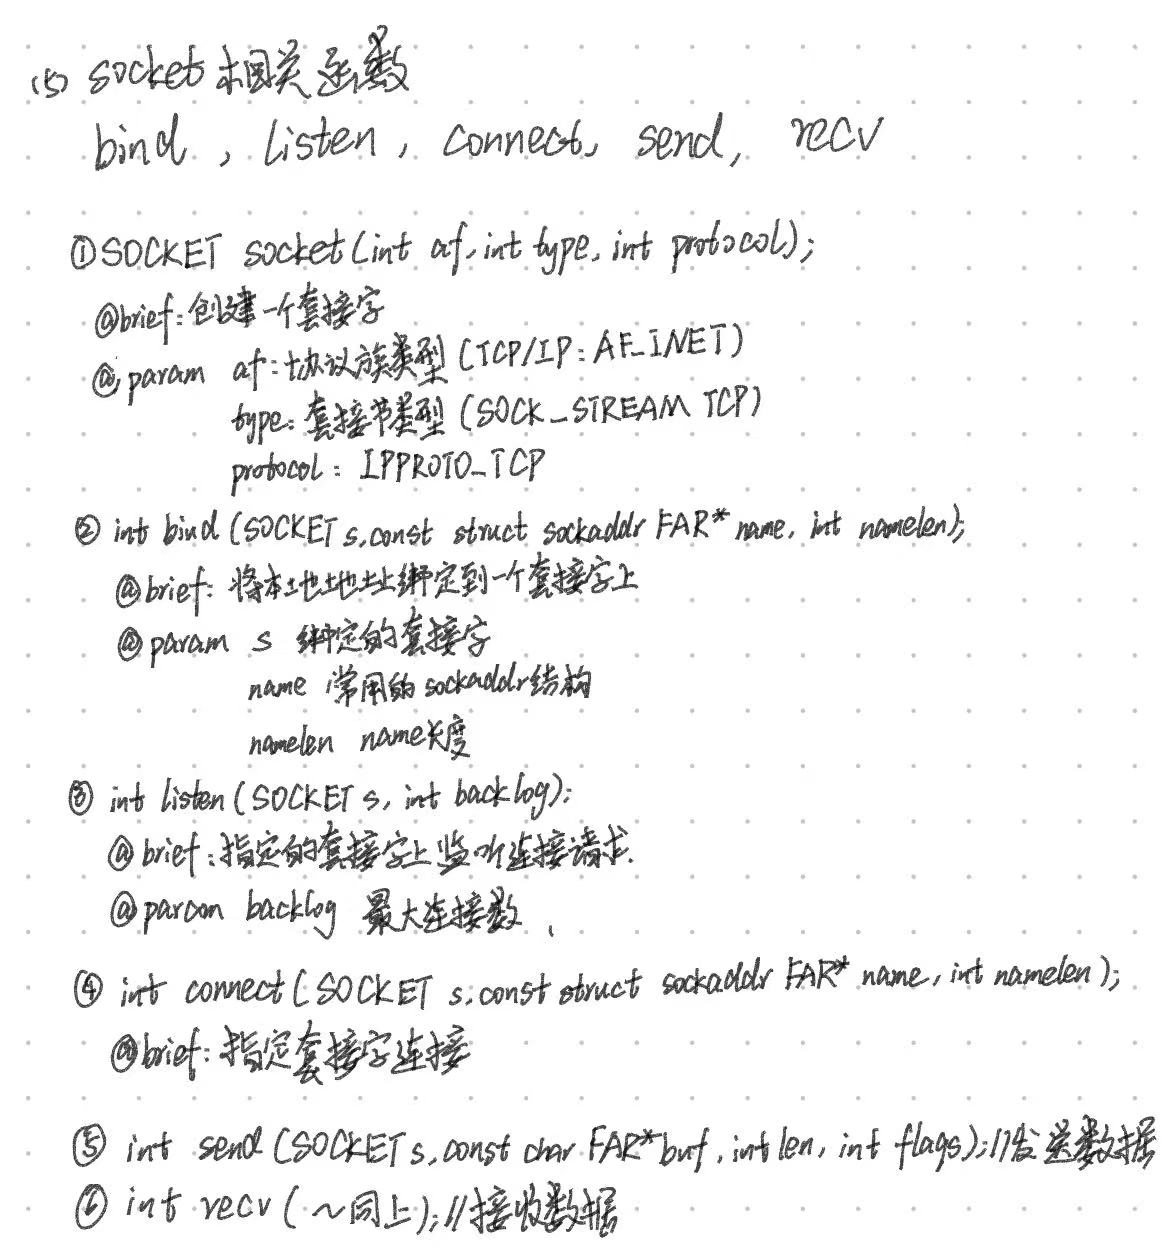 (5) socket相关函数
bind, listen, connect, send, recv
① SOCKET socket(int af, int type, int protocol);
@brief: 创建一个套接字
@param af: 协议族类型 (TCP/IP: AF_INET)
type: 套接节类型 (SOCK_STREAM TCP)
protocol: IPPROTO_TCP
② int bind (SOCKET s, const struct sockaddr FAR* name, int namelen);
@brief: 将本地地址绑定到一个套接字上
@param s 绑定的套接字
name 常用的sockaddr结构
namelen name长度
③ int listen (SOCKET s, int backlog);
@brief: 指定的套接字上监听连接请求.
@param backlog 最大连接数
④ int connect (SOCKET s, const struct sockaddr FAR* name, int namelen);
@brief: 指定套接字连接
⑤ int send (SOCKET s, const char FAR* buf, int len, int flags); //发送数据
⑥ int recv (～同上); //接收数据